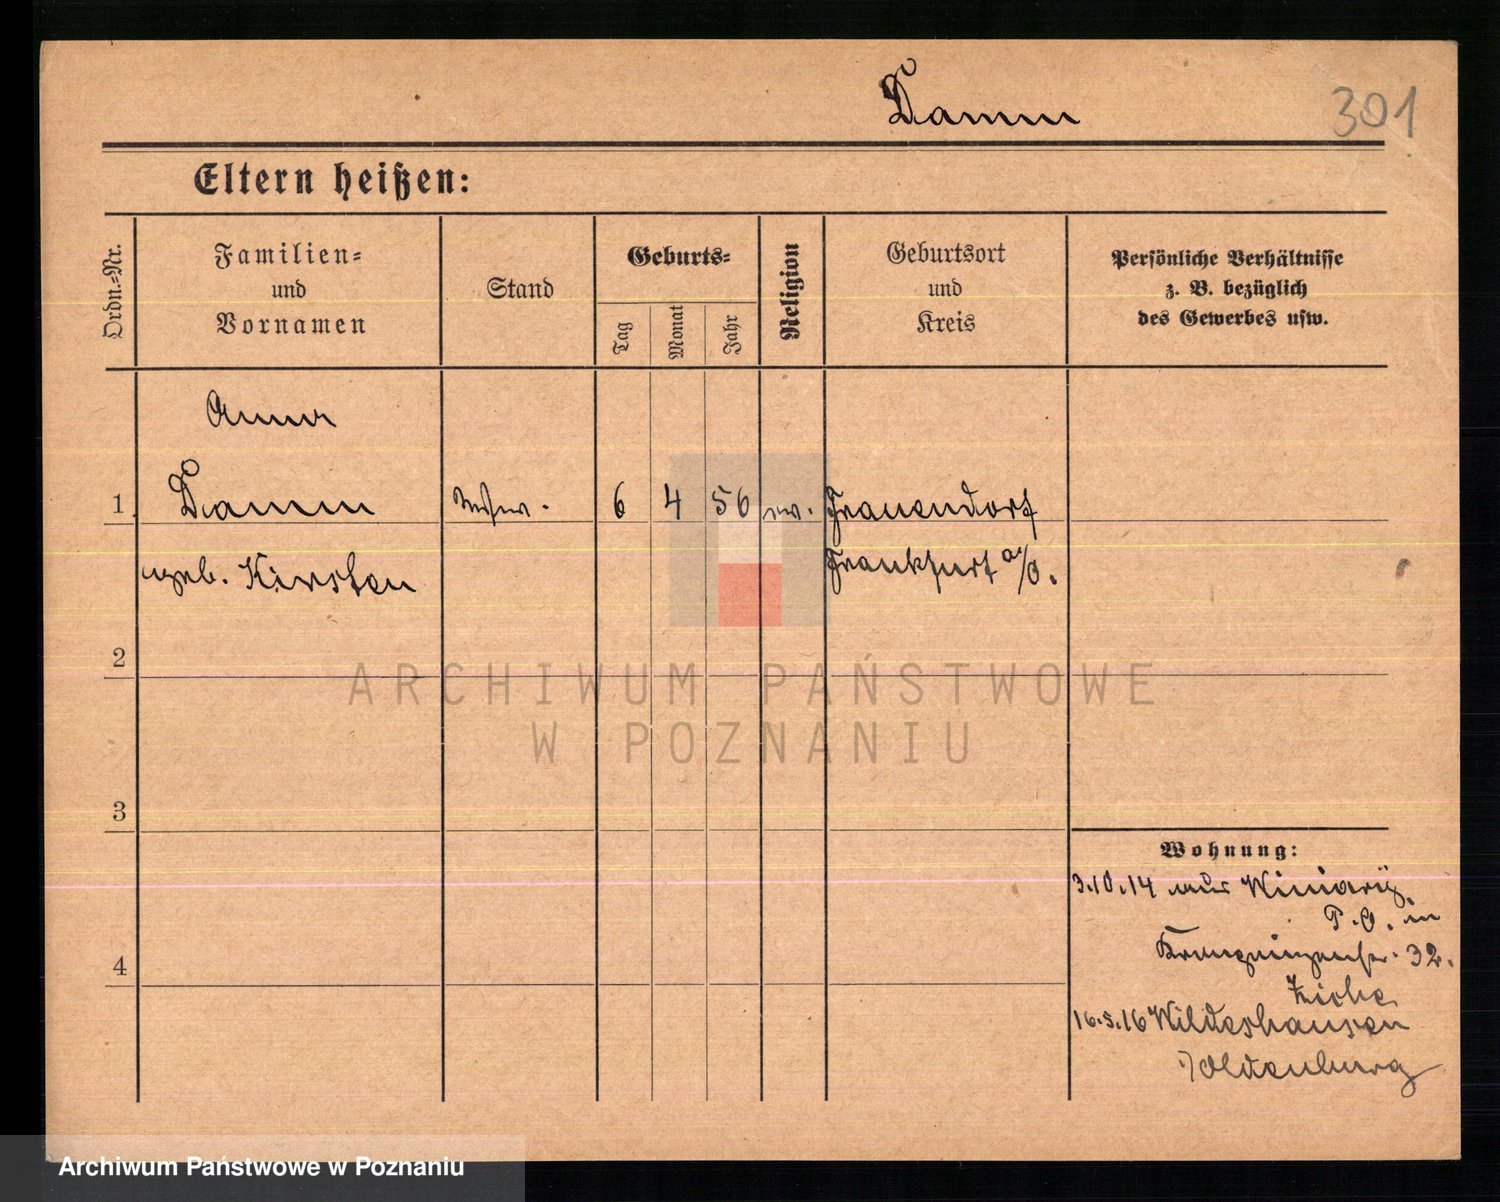 Damm
301
Eltern heißen:
Ordn.-Nr.
Familien-
und
Vornamen
Stand
Geburts-
Tag
Monat
Jahr
Religion
Geburtsort
und
Kreis
Persönliche Verhältnisse
z. B. bezüglich
des Gewerbes usw.
Anna
1. Damm 6 4 56 ev. Frauendorf
geb. Kirsten Frankfurt a/O.
2
3
4
Wohnung:
3.10.14 aus Winiary
P.O. in
Kronprinzenstr. 32.
16.5.16 Wildeshausen
Oldenburg
ARCHIWUM PAŃSTWOWE
W POZNANIU
Archiwum Państwowe w Poznaniu